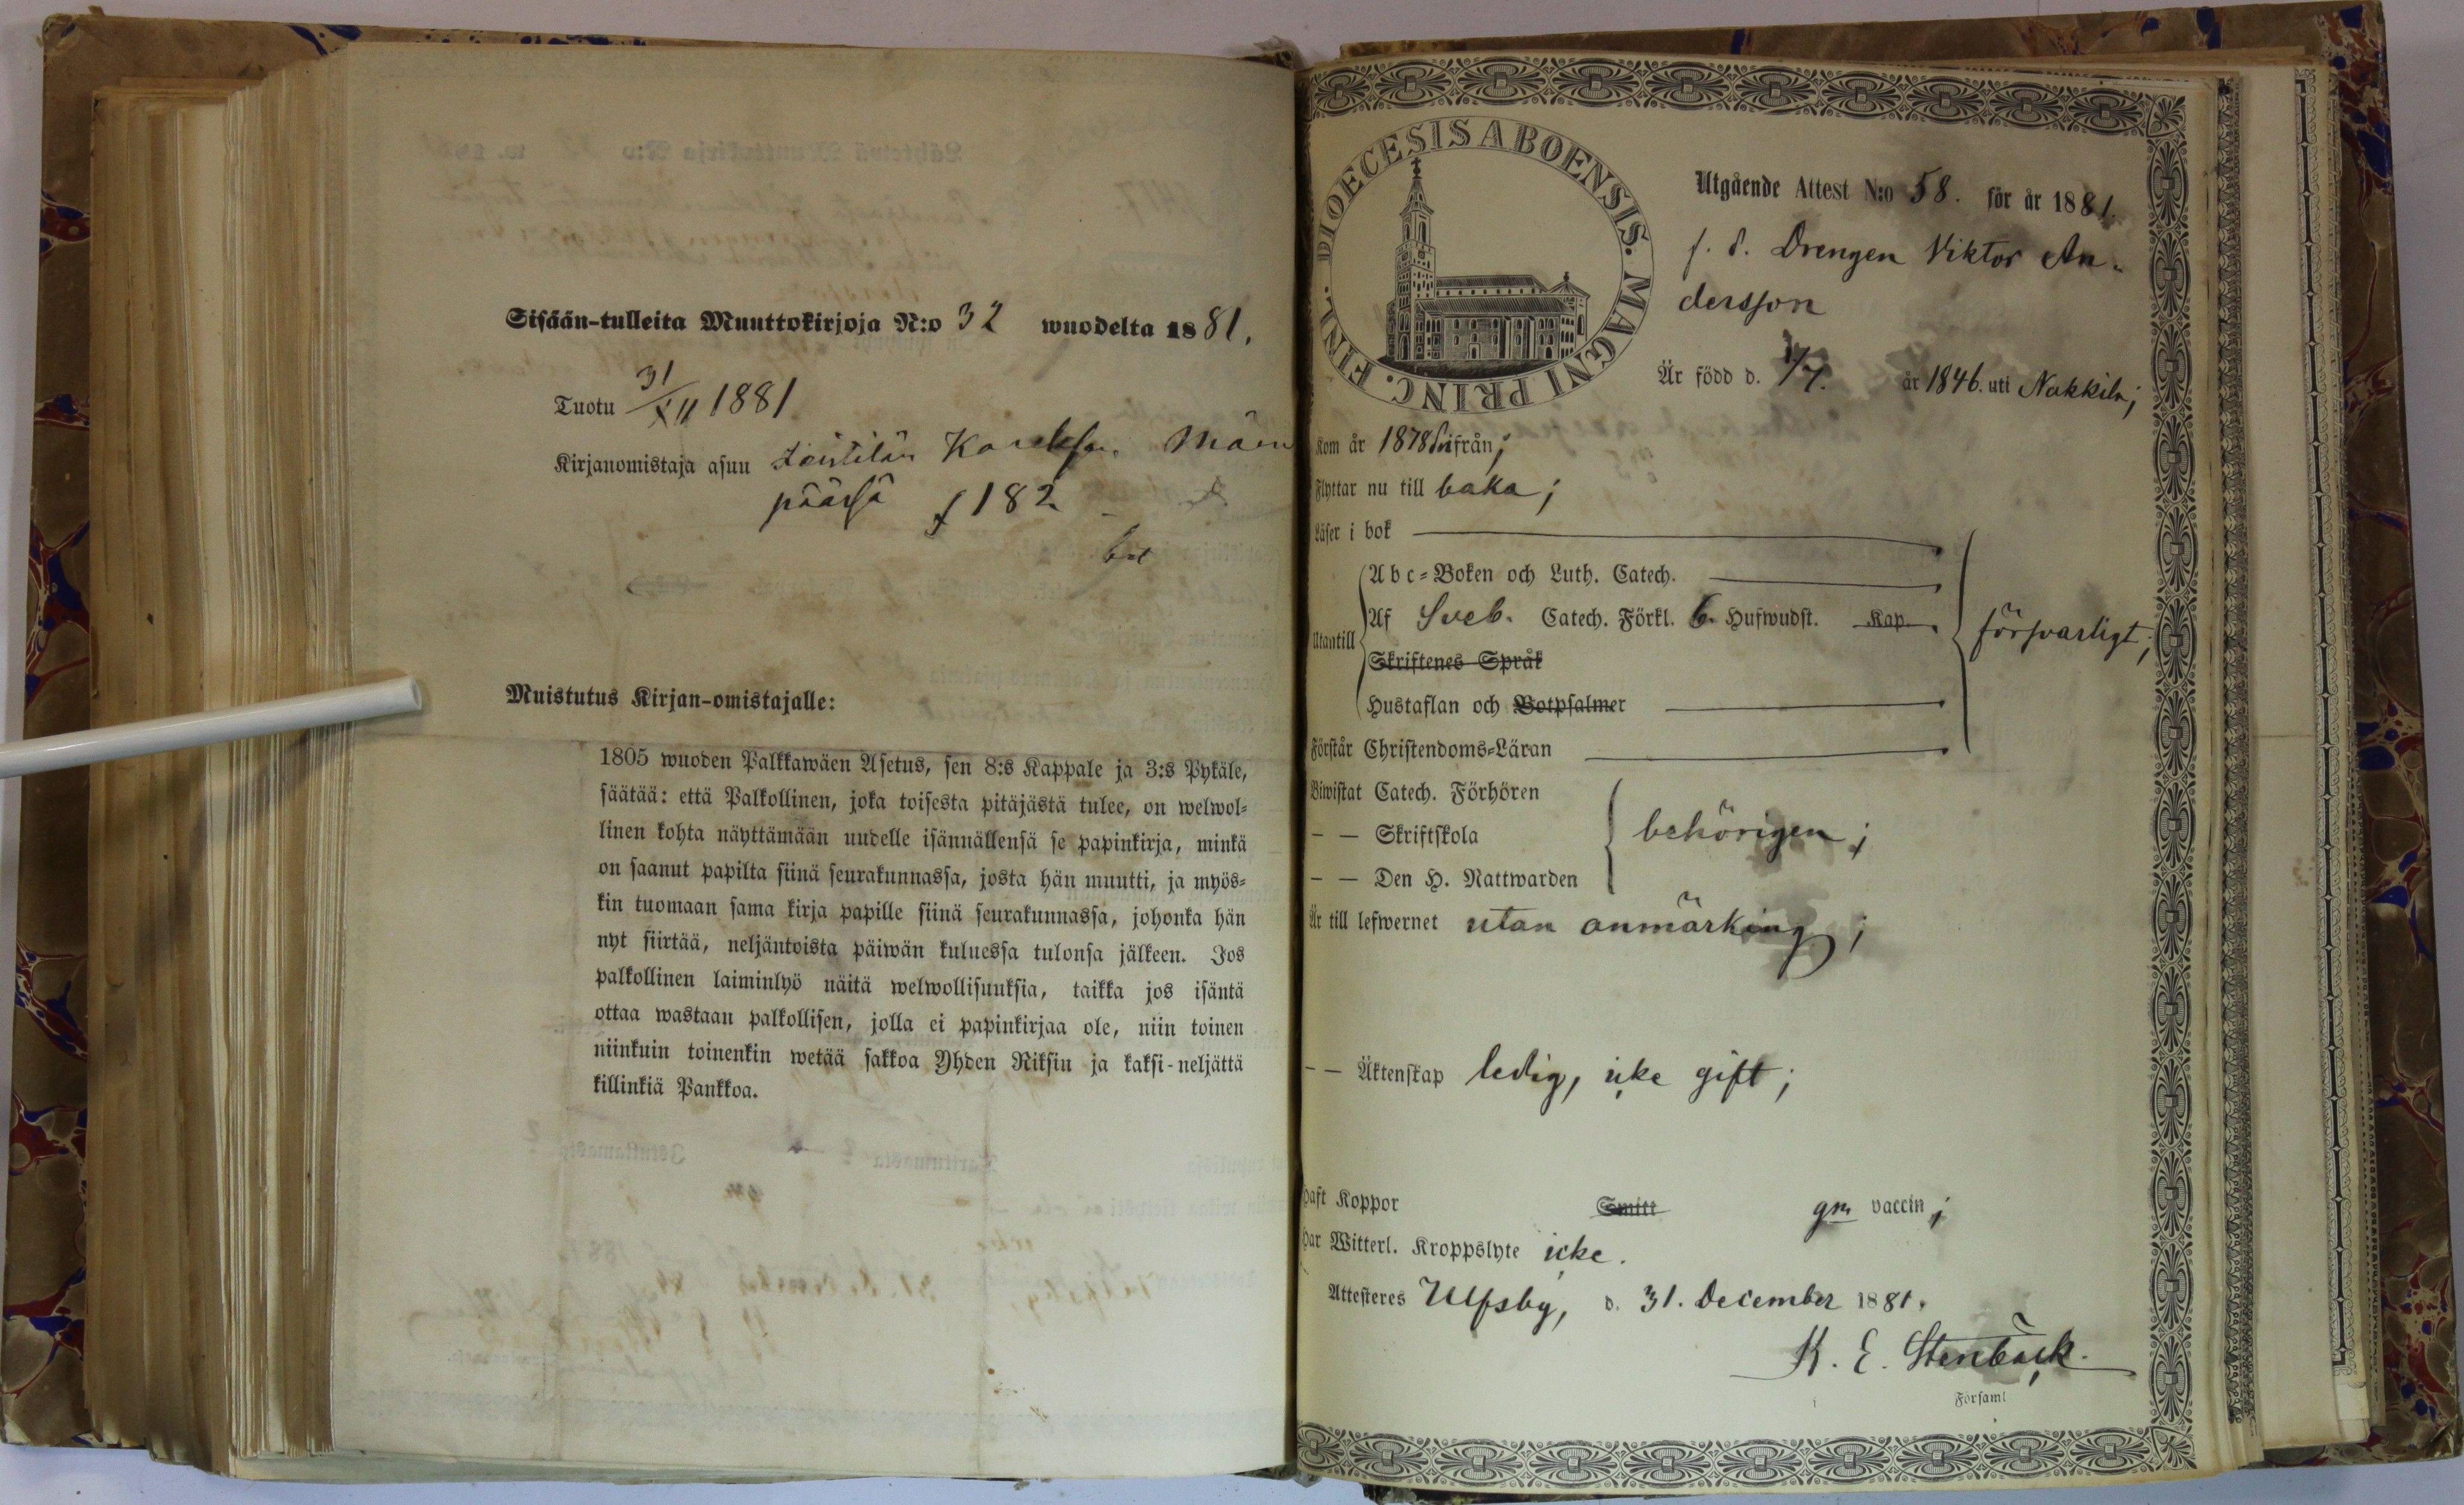 Sisään-tulleita Muuttokirjoja N:o 32 wuodelta 1881.
Tuotu 31/XII 1881
Kirjanomistaja asuu
päässä f 182
Muistutus Kirjan-omistajalle:
1805 wuoden Palkkawäen Asetus, sen 8:s Kappale ja 3:s Pykäle,
säätää: että Palkollinen, joka toisesta pitäjästä tulee, on welwol-
linen kohta näyttämään uudelle isännällensä se papinkirja, minkä
on saanut papilta siinä seurakunnassa, josta hän muutti, ja myös-
kin tuomaan sama kirja papille siinä seurakunnassa, johonka hän
nyt siirtää, neljäntoista päiwän kuluessa tulonsa jälkeen. Jos
palkollinen laiminlyö näitä welwollisuuksia, taikka jos isäntä
ottaa wastaan palkollisen, jolla ei papinkirjaa ole, niin toinen
niinkuin toinenkin wetää sakkoa Yhden Riksin ja kaksi-neljättä
killinkiä Pankkoa.
DIOECESIS ABOENSIS. MAGNI PRINC. FINL.
Utgående Attest N:o 58. för år 1881.
f. d. Drengen Viktor An-
dersson
Är född d. 1/7. år 1846. uti Nakkila;
Kom år 1878 härifrån;
Flyttar nu till baka;
Läser i bok
Utantill
Abc-Boken och Luth. Catech.
Af Sveb. Catech. Förkl. 6. Hufwudst. Kap.
försvarligt;
Skriftenes Språk
Hustaflan och Botpsalmer
Förstår Christendoms-Läran
Biwistat Catech. Förhören
– – Skriftskola
behörigen;
– – Den H. Nattwarden
Är till lefwernet utan anmärking;
– – Äktenskap ledig, icke gift;
Haft Koppor Smitt gm vaccin;
Har Witterl. Kroppslyte icke.
Attesteres Ulfsby, d. 31. December 1881.
K. E. Stenbäck.
Församl